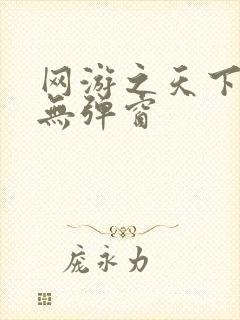 网游之天下
無弹窗
庞永力